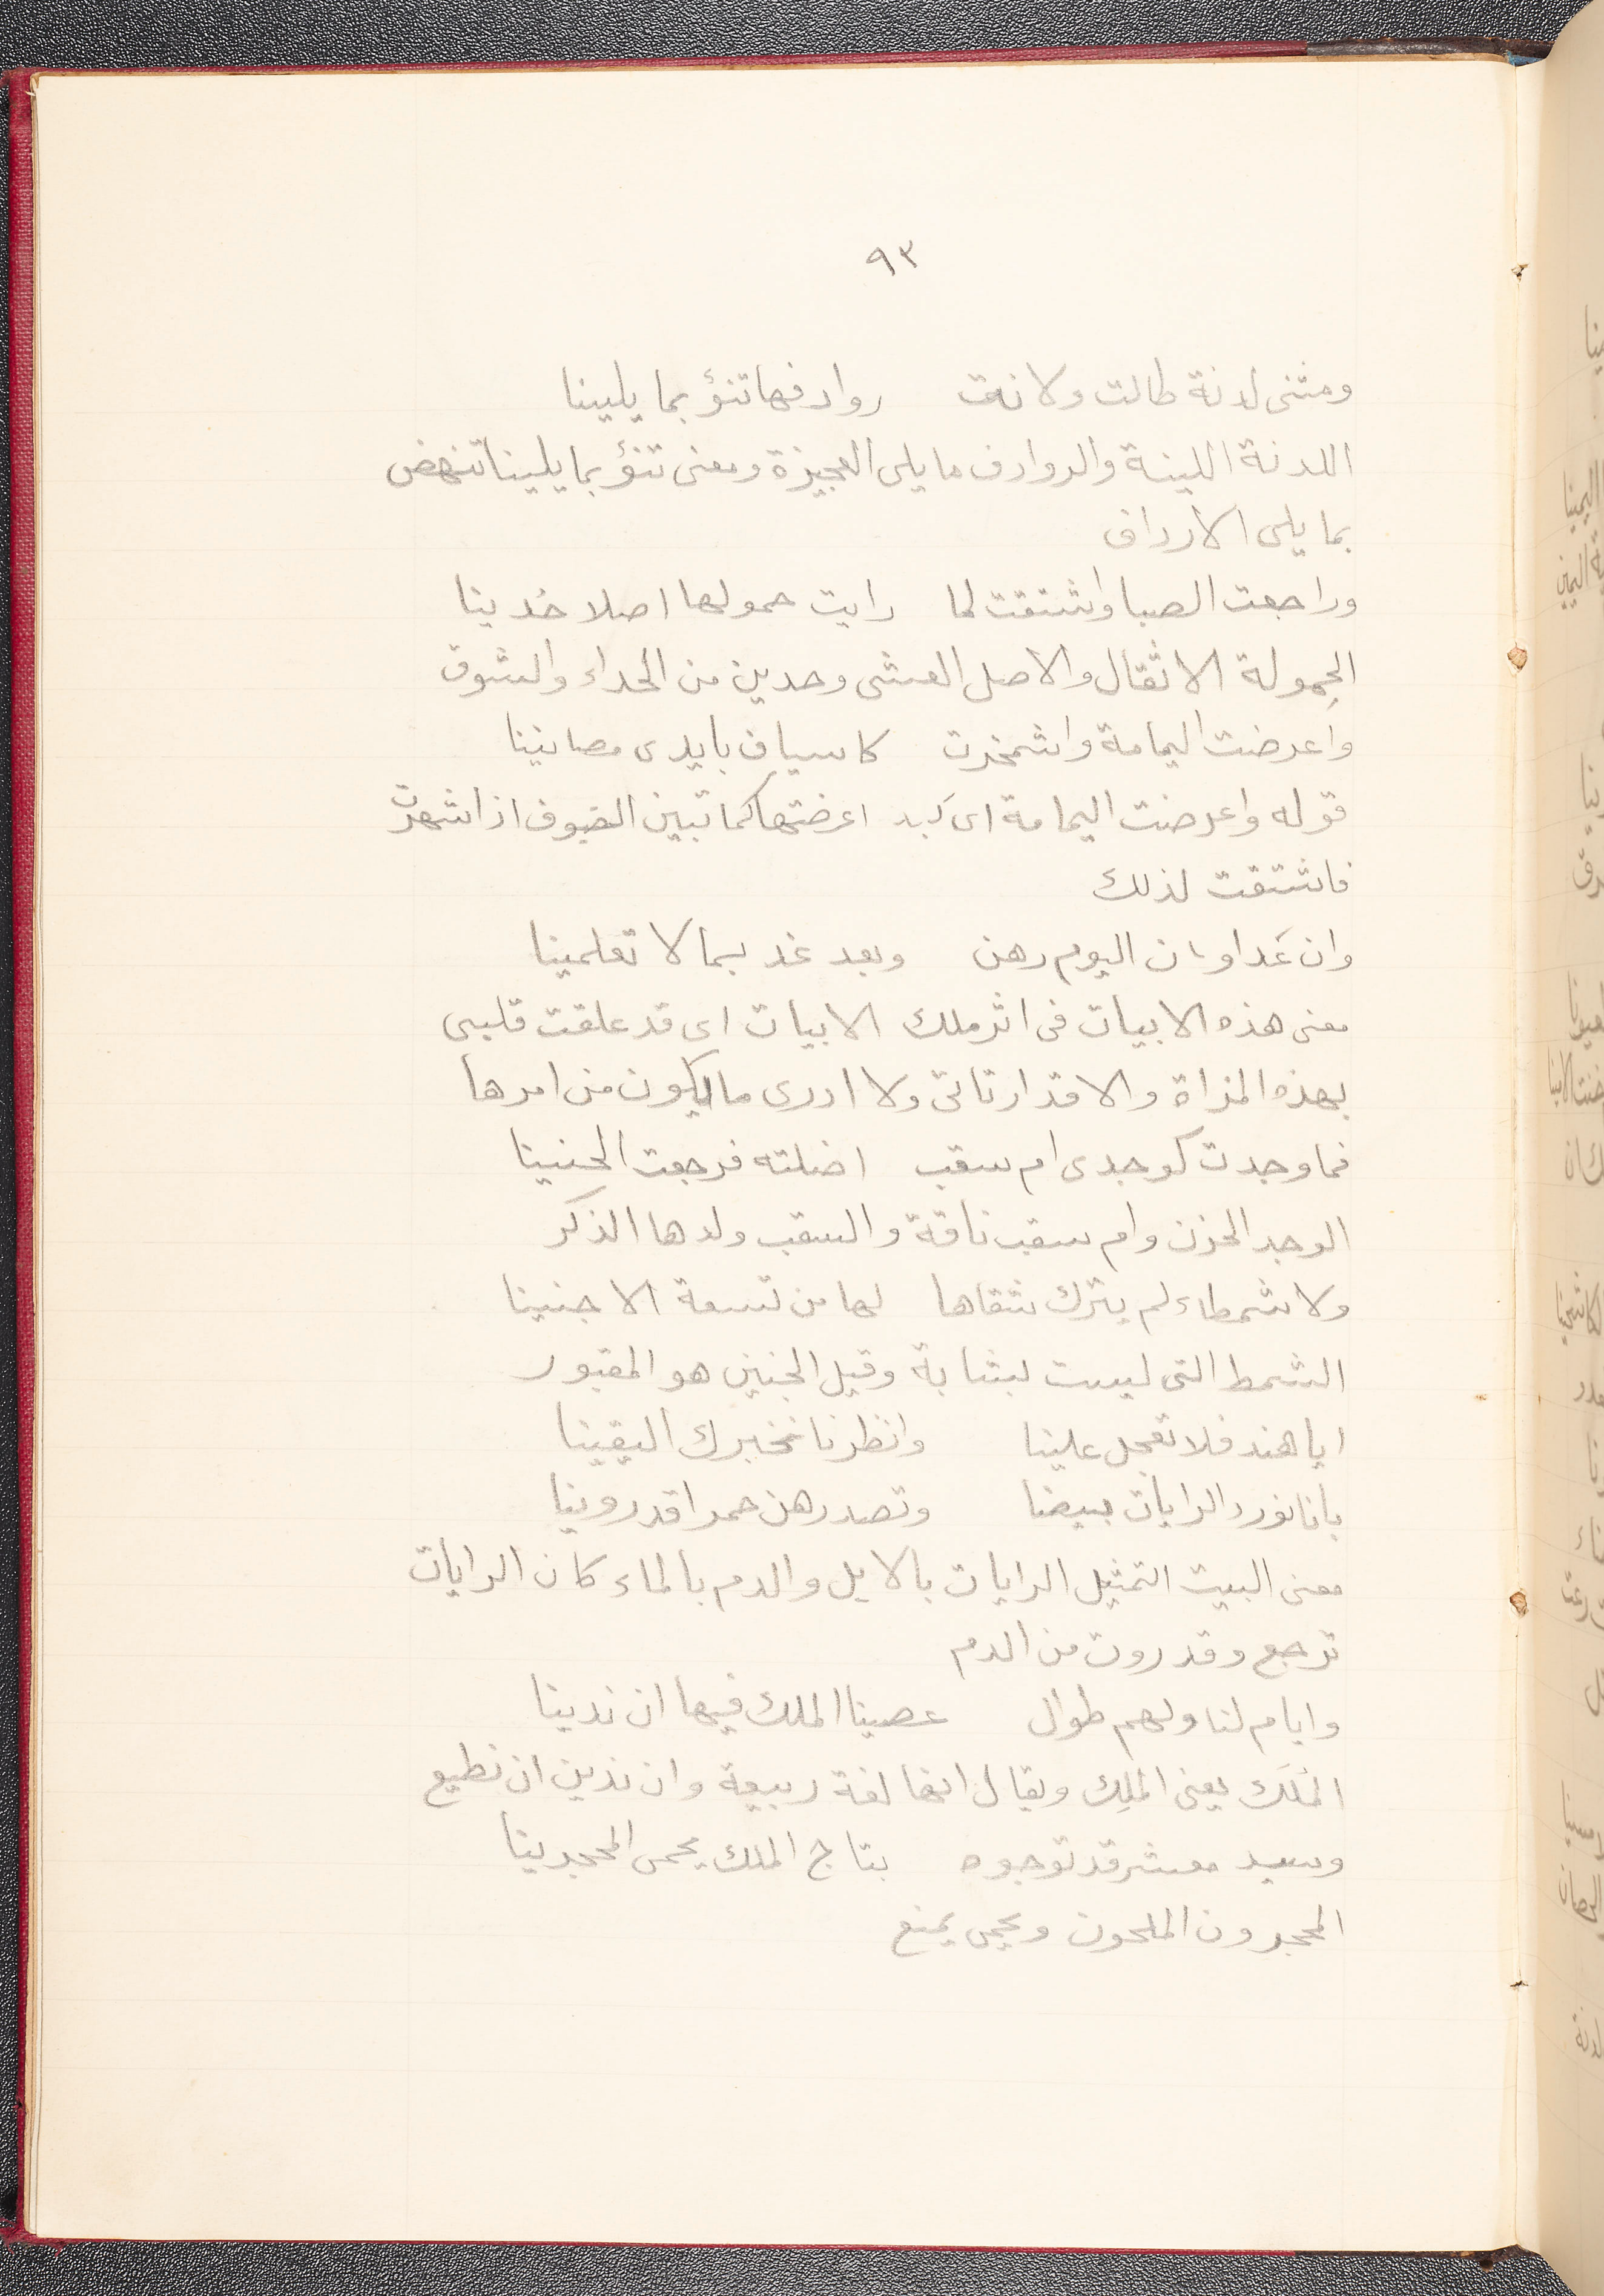 ٩٣
ومثنى لدنة طالت ولانت روادفها تنؤ بما يلينا
اللدنة اللينة والروادف ما يلى العجيزة ومعنى تنؤ بما يلينا تنهض
بما يلى الارداف
وراجعت الصبا واشتقت لما رايت حمولها اصلا حدينا
الحِمولة الاثقال والاصل العشى وحدين من الحداء والشوق
واعرضت اليمامة واشمخرت كاسياف بايدى مصلتينا
قوله واعرضت اليمامة اى اعرضتها كما تبين السيوف اذا شهرت
فاشتقت لذلك
وان غدا وان اليوم رهن وبعد غد بما لا تعلمينا
معنى هذه الابيات فى اثر ملك الابيات اى قد علقت قلبى
بهذه المراة والاقدار تاتى ولا ادرى ما يكون من امرها
فما وجدت كوجدى ام سقب اضلته فرجعت الحنينا
الوجد الحزن وام سقب ناقة والسقب ولدها الذكر
ولا شمطاء لم يترك شقاها لها من تسعة الا جنينا
الشمط التى ليست بشابة وقيل الجنين هو المقبور
ايا هند فلا تعجل علينا وانظرنا نخبرك اليقينا
بانا نورد الرايات بيضا وتصدرهن حمرا قد روينا
معنى البيت التمثيل الرايات بالابل والدم بالماء كان الرايات
ترجع وقد روت من الدم
وايام لنا ولهم طوال عصينا الملك فيها ان ندينا
المَلَك يعنى الملِك ويقال انها لغة ربيعة وان ندين ان نطيع
وسيد معشر قد توجوه بتاج الملك يحمى المحجرينا
المحجرون الملحون ويحمى يمنع